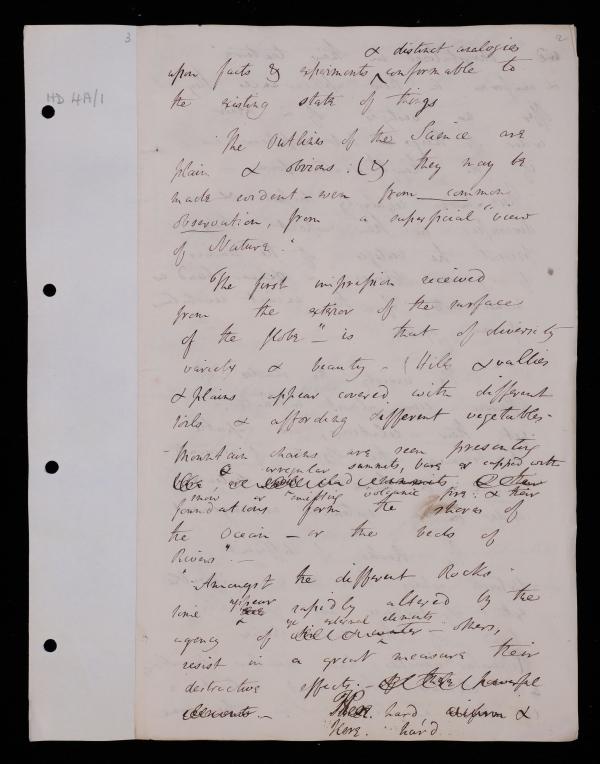 3
2
HD 4A/1
& distinct analogies
upon facts & experiments conformable to
the existing state of things
The Outlines of the Science are
plain & obvious: (& they may be
made evident - even from common
observation, from a superficial "view
of Nature."
"The first impression received
from the exterior of the surface
of the globe" - is that of diversity
variety & beauty - (Hills & vallies
& plains appear covered with different
soils & affording different vegetables -
Mountain chains are seen presenting
irregular summits, bare or capped with
snow or emitting volcanic fire: & their
foundations form the shores of
the Ocean - or the beds of
Rivers". -
"Amongst the different Rocks
some appear rapidly altered by the
external elements
agency of water - others,
resist in a great measure their
destructive effects. - powerful
elements. - hard uniform &
Here. hard